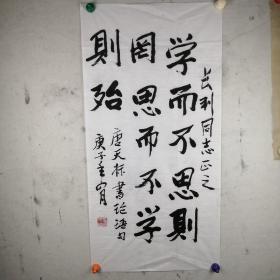 长利同志正之
学而不思则
罔思而不学
則殆
唐天标書论语句
庚子年